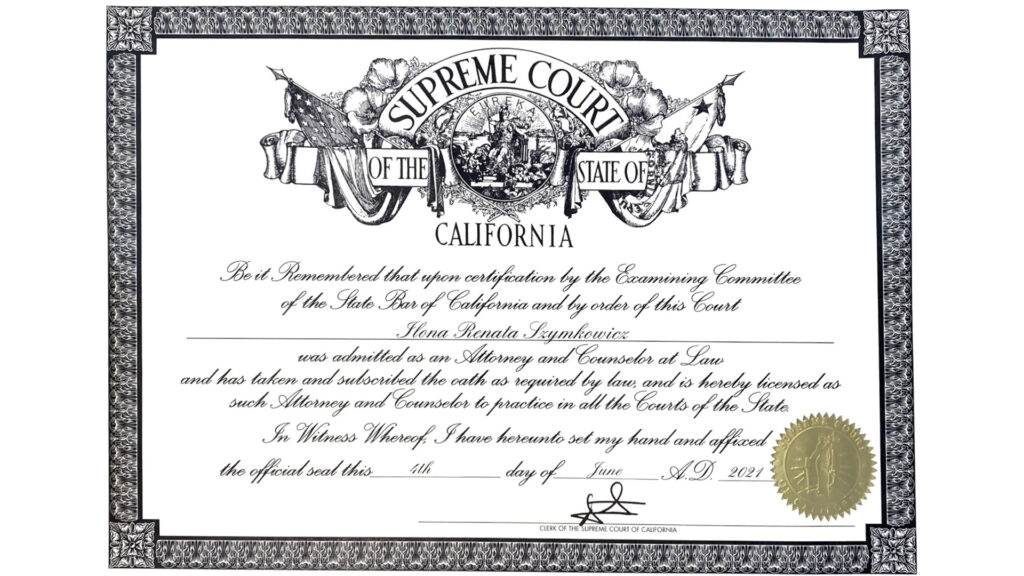 SUPREME COURT
EUREKA
OF THE STATE OF
CALIFORNIA
Be it Remembered that upon certification by the Examining Committee
of the State Bar of California and by order of this Court
Ilona Renata Szymkowicz
was admitted as an Attorney and Counselor at Law
and has taken and subscribed the oath as required by law, and is hereby licensed as
such Attorney and Counselor to practice in all the Courts of the State.
In Witness Whereof, I have hereunto set my hand and affixed
the official seal this 4th day of June A.D. 2021
CLERK OF THE SUPREME COURT OF CALIFORNIA